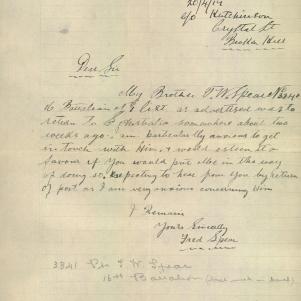 20/4/19
c/o Hutchinson
Crystal St
Broken Hill
Dear Sir
My Brother T. W. Spear
16 Battalion of A list as advertised was to
return to S Australia somewhere about two
weeks ago. I am particularly anxious to get
in touch with Him, & would esteem it a
favour if you would put me in the way
of doing so. Expecting to hear from you by return
of post as I am very anxious concerning Him
I Remain
Yours Sincerely
Fred Spear
3841 Pte T W Spear
16th Battalion